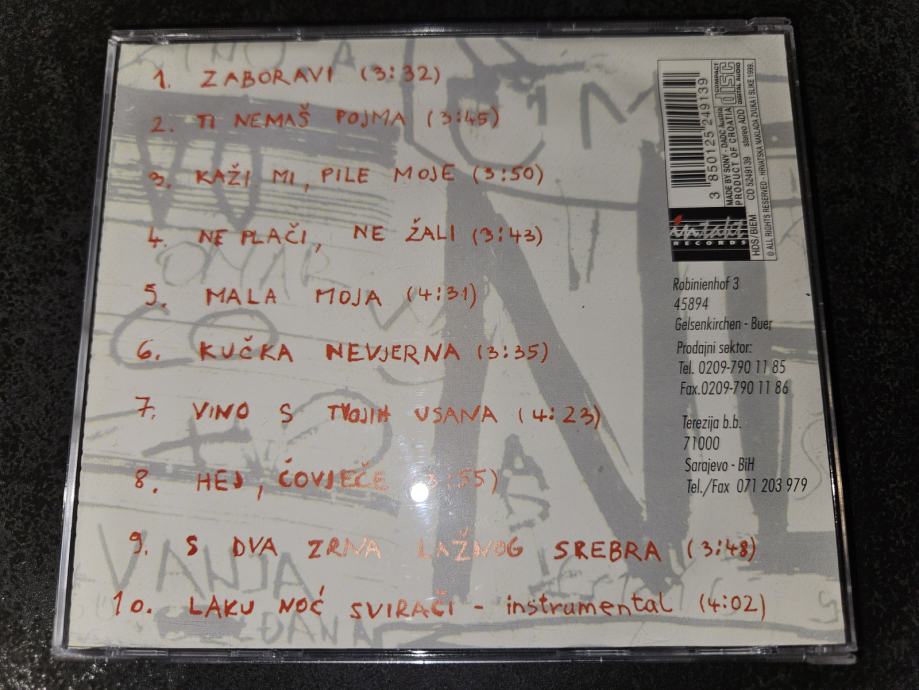 1. ZABORAVI (3:32)
2. TI NEMAŠ POJMA (3:45)
3. KAŽI MI, PILE MOJE (3:50)
4. NE PLAČI, NE ŽALI (3:43)
5. MALA MOJA (4:31)
6. KUČKA NEVJERNA (3:35)
7. VINO S TVOJIH USANA (4:23)
8. HEJ, ČOVJEČE 3:55)
9. S DVA ZRNA LAŽNOG SREBRA (3:48)
10. LAKU NOĆ SVIRAČI - instrumental (4:02)
3 850125 249139
COMPACT
disc
DIGITAL AUDIO
MADE BY SONY - DADC Austria
PRODUCT OF CROATIA
CD 5249139 stereo ADD
HDS/BIEM
© ALL RIGHTS RESERVED - HRVATSKA NAKLADA ZVUKA I SLIKE 1999.
intakt
RECORDS
Robinienhof 3
45894
Gelsenkirchen - Buer
Prodajni sektor:
Tel. 0209-790 11 85
Fax.0209-790 11 86
Terezija b.b.
71000
Sarajevo - BiH
Tel./Fax 071 203 979
OMAR
VANJA
DANA